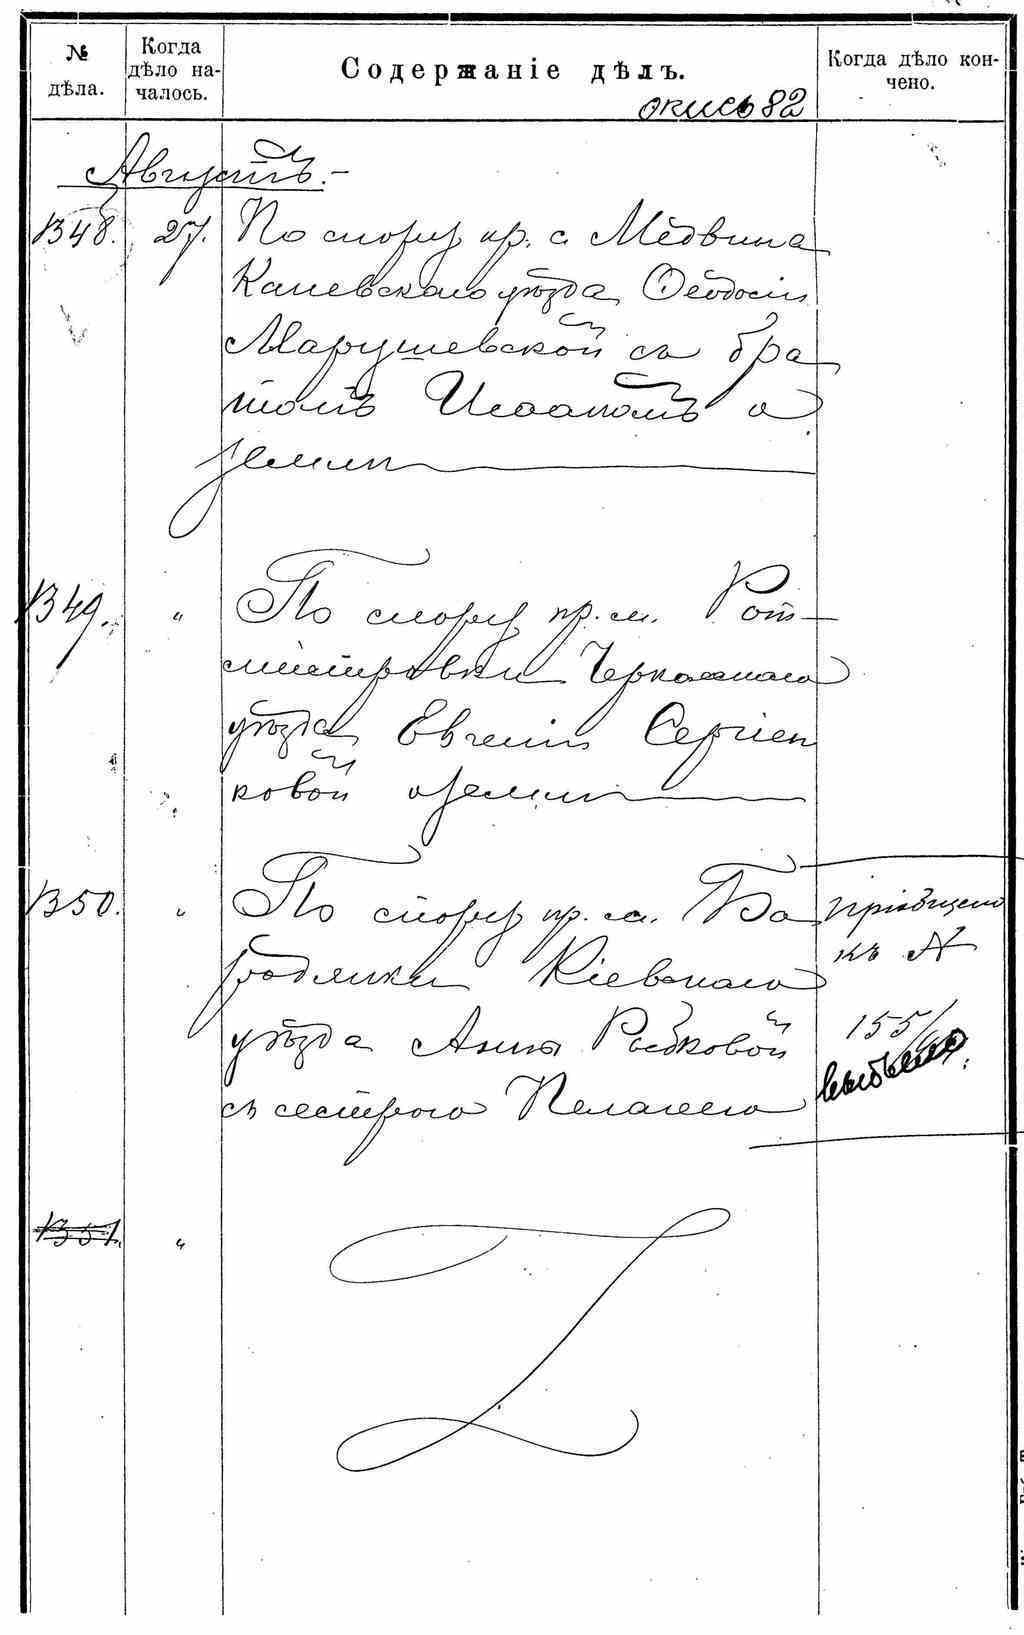 № дѣла.
Когда дѣло на-
чалось.
Содержаніе дѣлъ.
Когда дѣло кон-
чено.
опись 82
Августъ.-
1348. 27. По спору кр. с. Медвина
Каневскаго уѣзда Ѳеодосіи
Марушевской съ бра
томъ Исаакомъ о
землѣ
1349. " По спору кр. м. Рот-
мистровки Черкасскаго
уѣзда Евгеніи Сергіен
ковой о землѣ
1350. " По спору кр. м. Бо
родянки Кіевскаго
уѣзда Анны Рыбковой
съ сестрою Пелагеею
пріобщено
къ №
155/
выбыло
1351. "